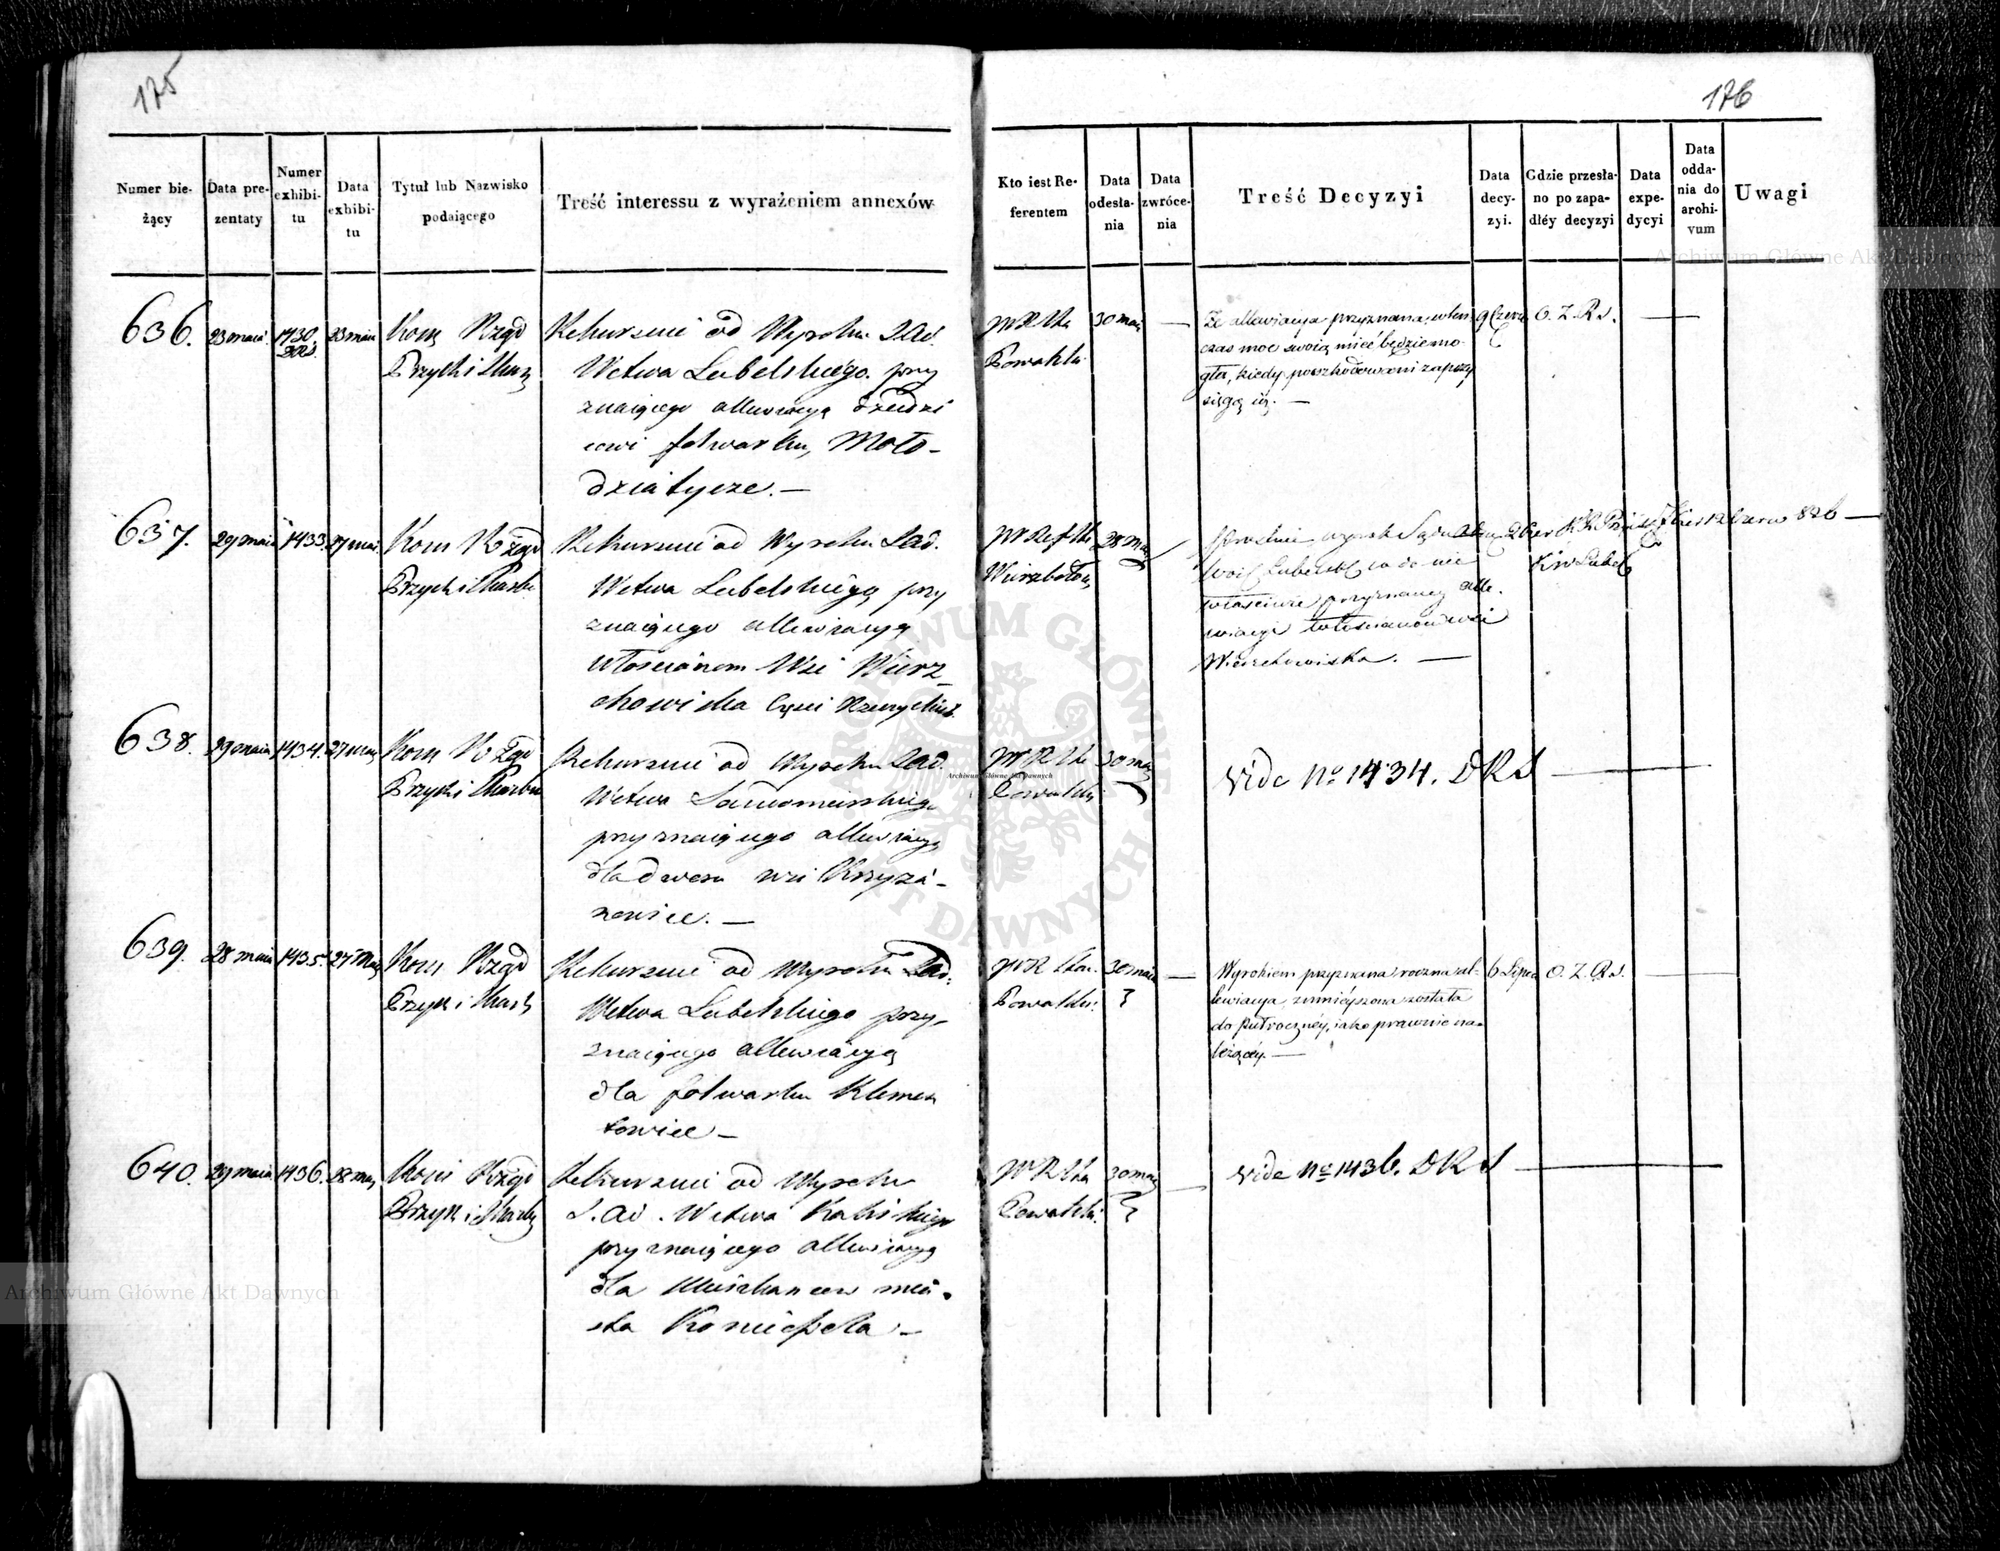 175
Numer bie-
żący
Data pre-
zentaty
Numer
exhibi-
tu
Data
exhibi-
tu
Tytuł lub Nazwisko
podaiącego
Treść interessu z wyrażeniem annexów
636.
23 maia
1430.
DRS.
23 maia
Kom Rząd
Przych i Skar
Rekursuie od Wyroku S Ad.
Wctwa Lubelskiego przy
znaiącego allewiacyą dziedzi
cowi folwarku, Moło-
dziatycze. —
637.
29 maia
1433.
27 mai
Kom Rząd
Przych i Skarbu
Rekursuie od Wyroku Sad.
Wctwa Lubelskiego przy
znaiącego allewiacyą
włościanom Wsi Wierz
chowiska Częsci
638.
29 maia
1434.
27 maia
Kom Rząd
Przych i Skarbu
Rekursuie od Wyroku Sad.
Wctwa Sandomirskiego
przyznaiącego allewiacyą
dla dworu wsi Krzyża-
nowice. —
639.
28 maia
1435.
27 Maia
Kom Rząd
Przych i Skarb
Rekursuie od Wyroku Sad.
Wctwa Lubelskiego przy-
znaiącego allewiacyą
dla folwarku Klemen
towice —
640.
29 maia
1436.
28 mai
Kom Rząd
Przych i Skarbu
Rekursuie od Wyroku
S. Ad. Wctwa Kaliskiego
przyznaiącego allewiacyą
dla Mieszkancow mia-
sta Koniecpola —
176
Kto iest Re-
ferentem
Data
odesła-
nia
Data
zwróce-
nia
Treść Decyzyi
Data
decy-
zyi.
Gdzie przesła-
no po zapa-
dłéy decyzyi
Data
expe-
dycyi
Data
odda-
nia do
archi-
vum
Uwagi
WR Sta
Kowalski
30 maia
—
Że allewiacya przyznana, wten
czas moc swoią mieć będzie mo-
gła, kiedy poszkodowani zaprzy
sięgą ią. —
9 Czerw
O. Z. R S.
—
28 maia
Woi Lubelsk co do nie
właściwie przyznaney alle-
wiacyi włościanom wsi
Wierzchowiska. —
WR Sta
Kowalski
30 maia
Vide No 1434. DRS —
WR Stan.
Kowalski
30 maia
—
Wyrokiem przyznana roczna al-
lewiacya, zmnieyszona została
do półroczney, iako prawnie na-
leżącey. —
6 Lipca
O. Z. R S.
WR Sta
Kowalski
30 maia
—
Vide No 1436. DRS —
Archiwum Główne Akt Dawnych
ARCHIWUM GŁÓWNE AKT DAWNYCH
Archiwum Główne Akt Dawnych
Archiwum Główne Akt Dawnych